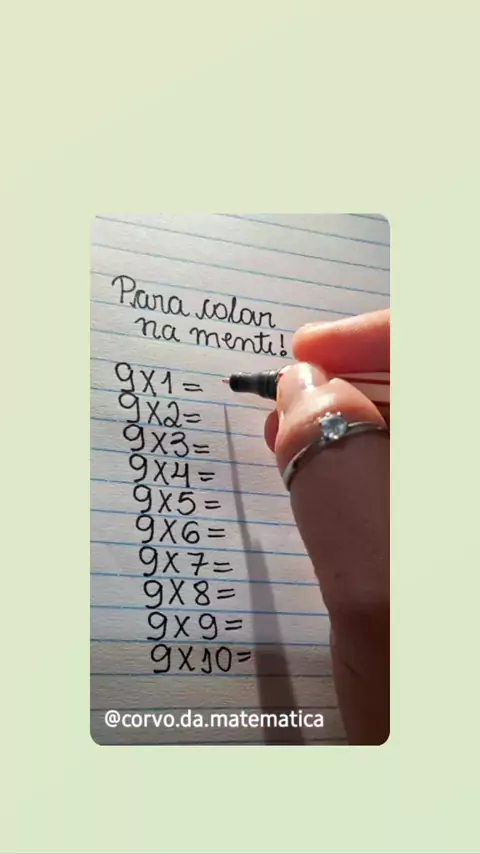 Para colar
na mente!
9x1=
9x2=
9x3=
9x4=
9x5=
9x6=
9x7=
9x8=
9x9=
9x10=
@corvo.da.matematica